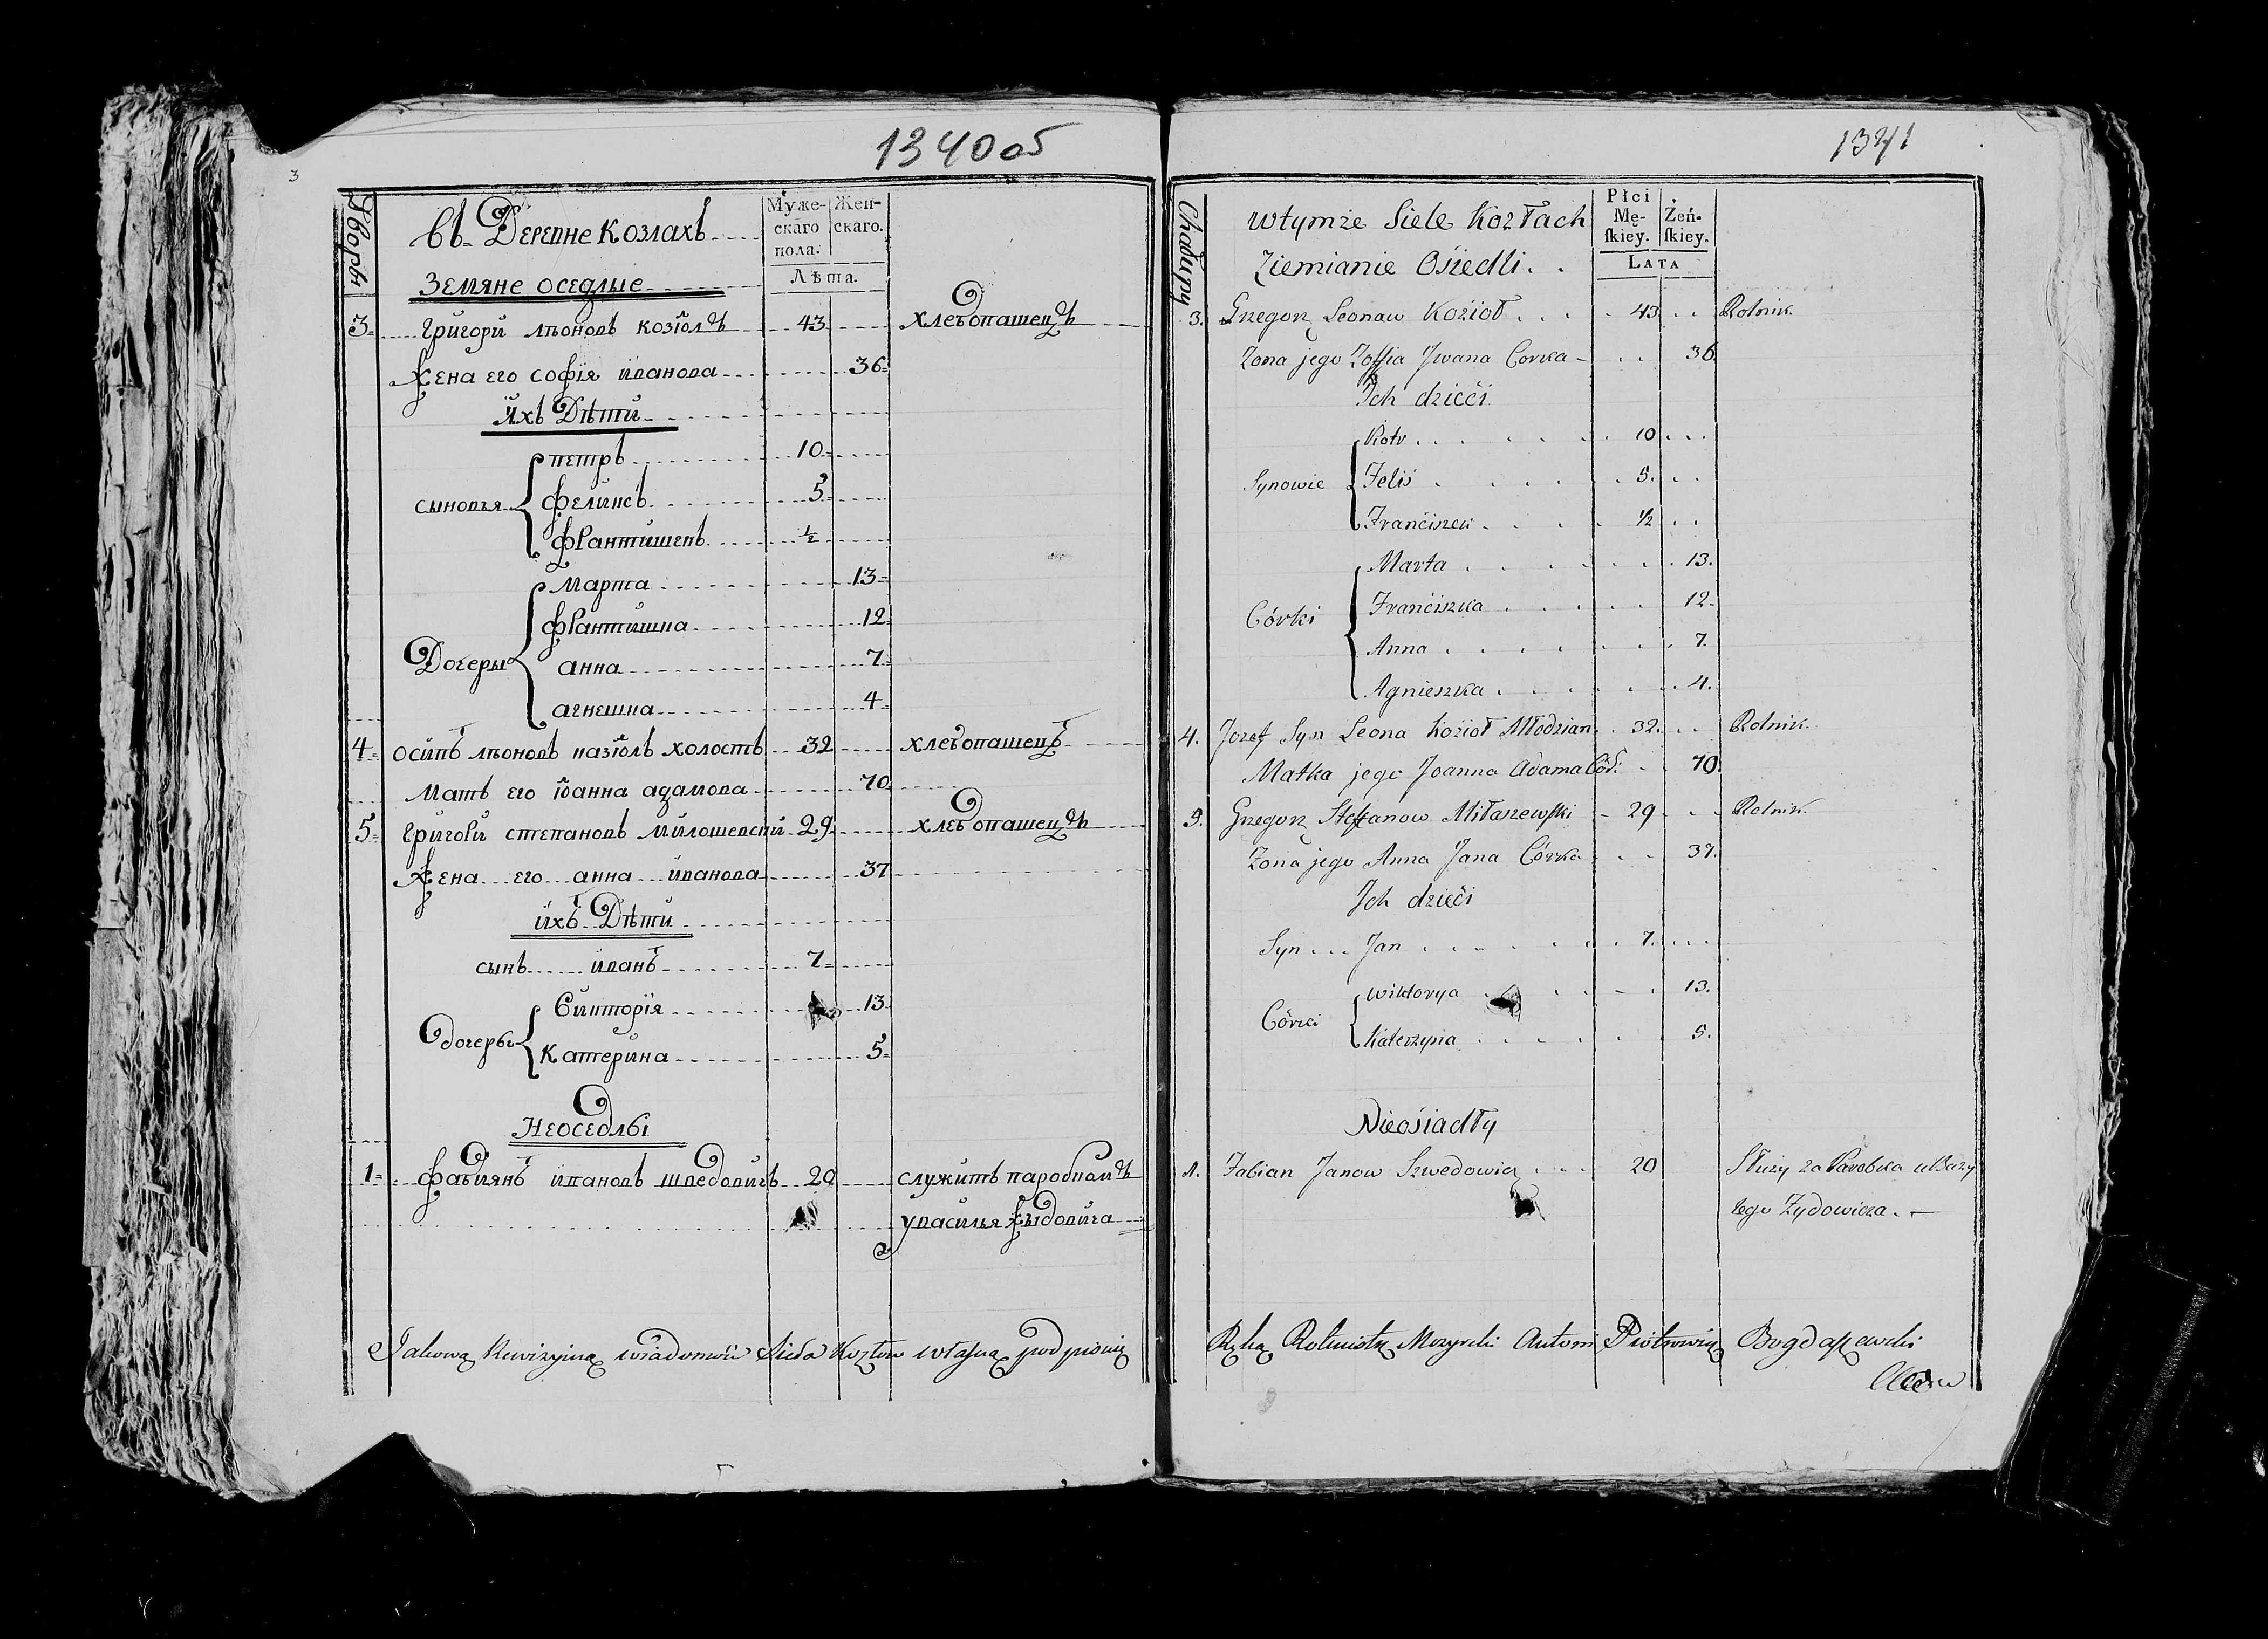 3
1340 об
Дворы
Въ Деревне Козлахъ
Муже-
скаго
пола.
Жен-
скаго.
Лѣта.
Земяне оседлые
3 Григори лѣоновъ козіолъ 43 хлебопашецъ
Жена его софія иванова 36
ихъ Дѣти
сыновья петръ 10
феликсъ 5
франтишекъ ½
Дочеры марта 13
франтишка 12
анна 7
агнешка 4
4 осипъ лѣоновъ казіолъ холостъ 32 хлебопашецъ
Мать его іоанна адамова 70
5 Григори степановъ милошевски 29 хлебопашецъ
Жена его анна иванова 37
ихъ Дѣти
сынъ иванъ 7
дочеры Викторія 13
Катерина 5
Неоседлы
1 фабиянъ ивановъ шведовичъ 20 служитъ паробкомъ
у василья жыдовича
Takową Rewizyiną wiadomość Sieła Kozłow własną podpisuię
1341
Chałupy
w tymże Siele Kozłach
Płci
Mę-
skiey.
Żeń-
skiey.
LATA
Ziemianie Osiedli
3. Grzegorz Leonow Kozioł 43 Rolnik
Zona jego Zoffia Jwana Corka 36
Jch dzieci
Synowie Piotr 10
Felix 5.
Franciszek ½
Córki Marta 13.
Franciszka 12
Anna 7.
Agnieszka 4.
4. Jozef Syn Leona Kozioł Młodzian 32. Rolnik
Matka jego Joanna Adama Cór. 70.
5. Grzegorz Steffanow Miłaszewski 29 Rolnik
Zona jego Anna Jana Córka 37.
Jch dzieci
Syn Jan 7.
Córki Wiktorya 13.
Katerzyna 5.
Nieosiadły
1. Fabian Janow Szwedowicz 20 Służy za Parobka u Bazy
lego Zydowicza.
Ręką Rotmistrz Mozyrski Antoni Piotrowicz Bogdaszewski